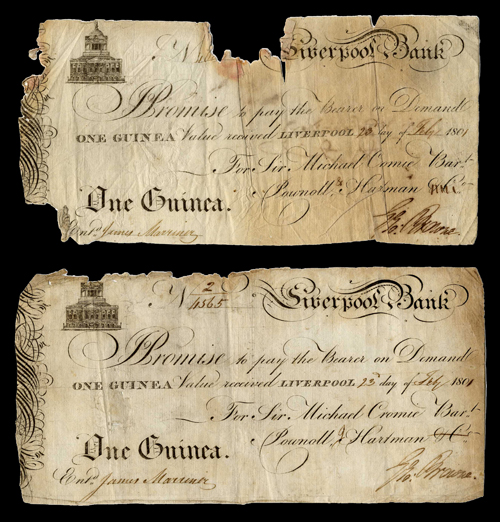 No
Liverpool Bank
I Promise to pay the Bearer on Demand
ONE GUINEA Value received LIVERPOOL 23 day of Feby 1801
For Sir Michael Cromie Bart.
Pownoll & Hartman
One Guinea.
Entd. James Marriner
Geo. Browne
No 2/4565
Liverpool Bank
I Promise to pay the Bearer on Demand
ONE GUINEA Value received LIVERPOOL 23 day of Feby 1801
For Sir Michael Cromie Bart.
Pownoll & Hartman
One Guinea.
Entd. James Marriner
Geo. Browne